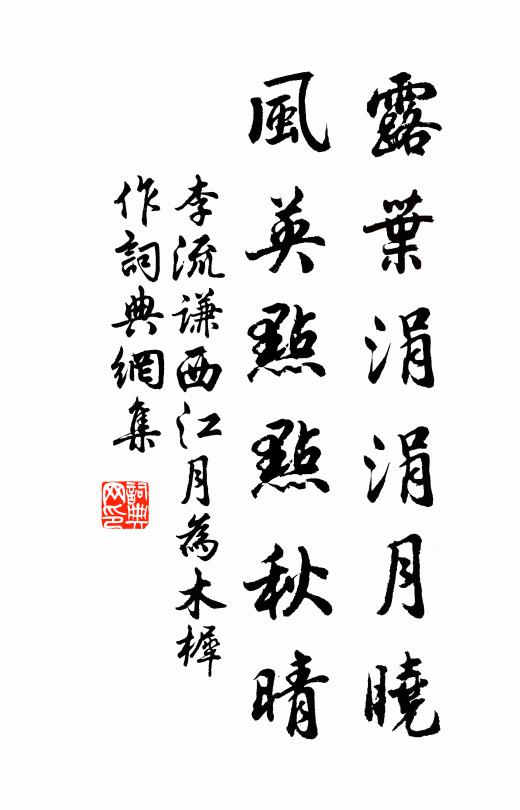 露葉涓涓月曉
風英點點秋晴
李流謙西江月為木樨
作詞典網集
詞典網印